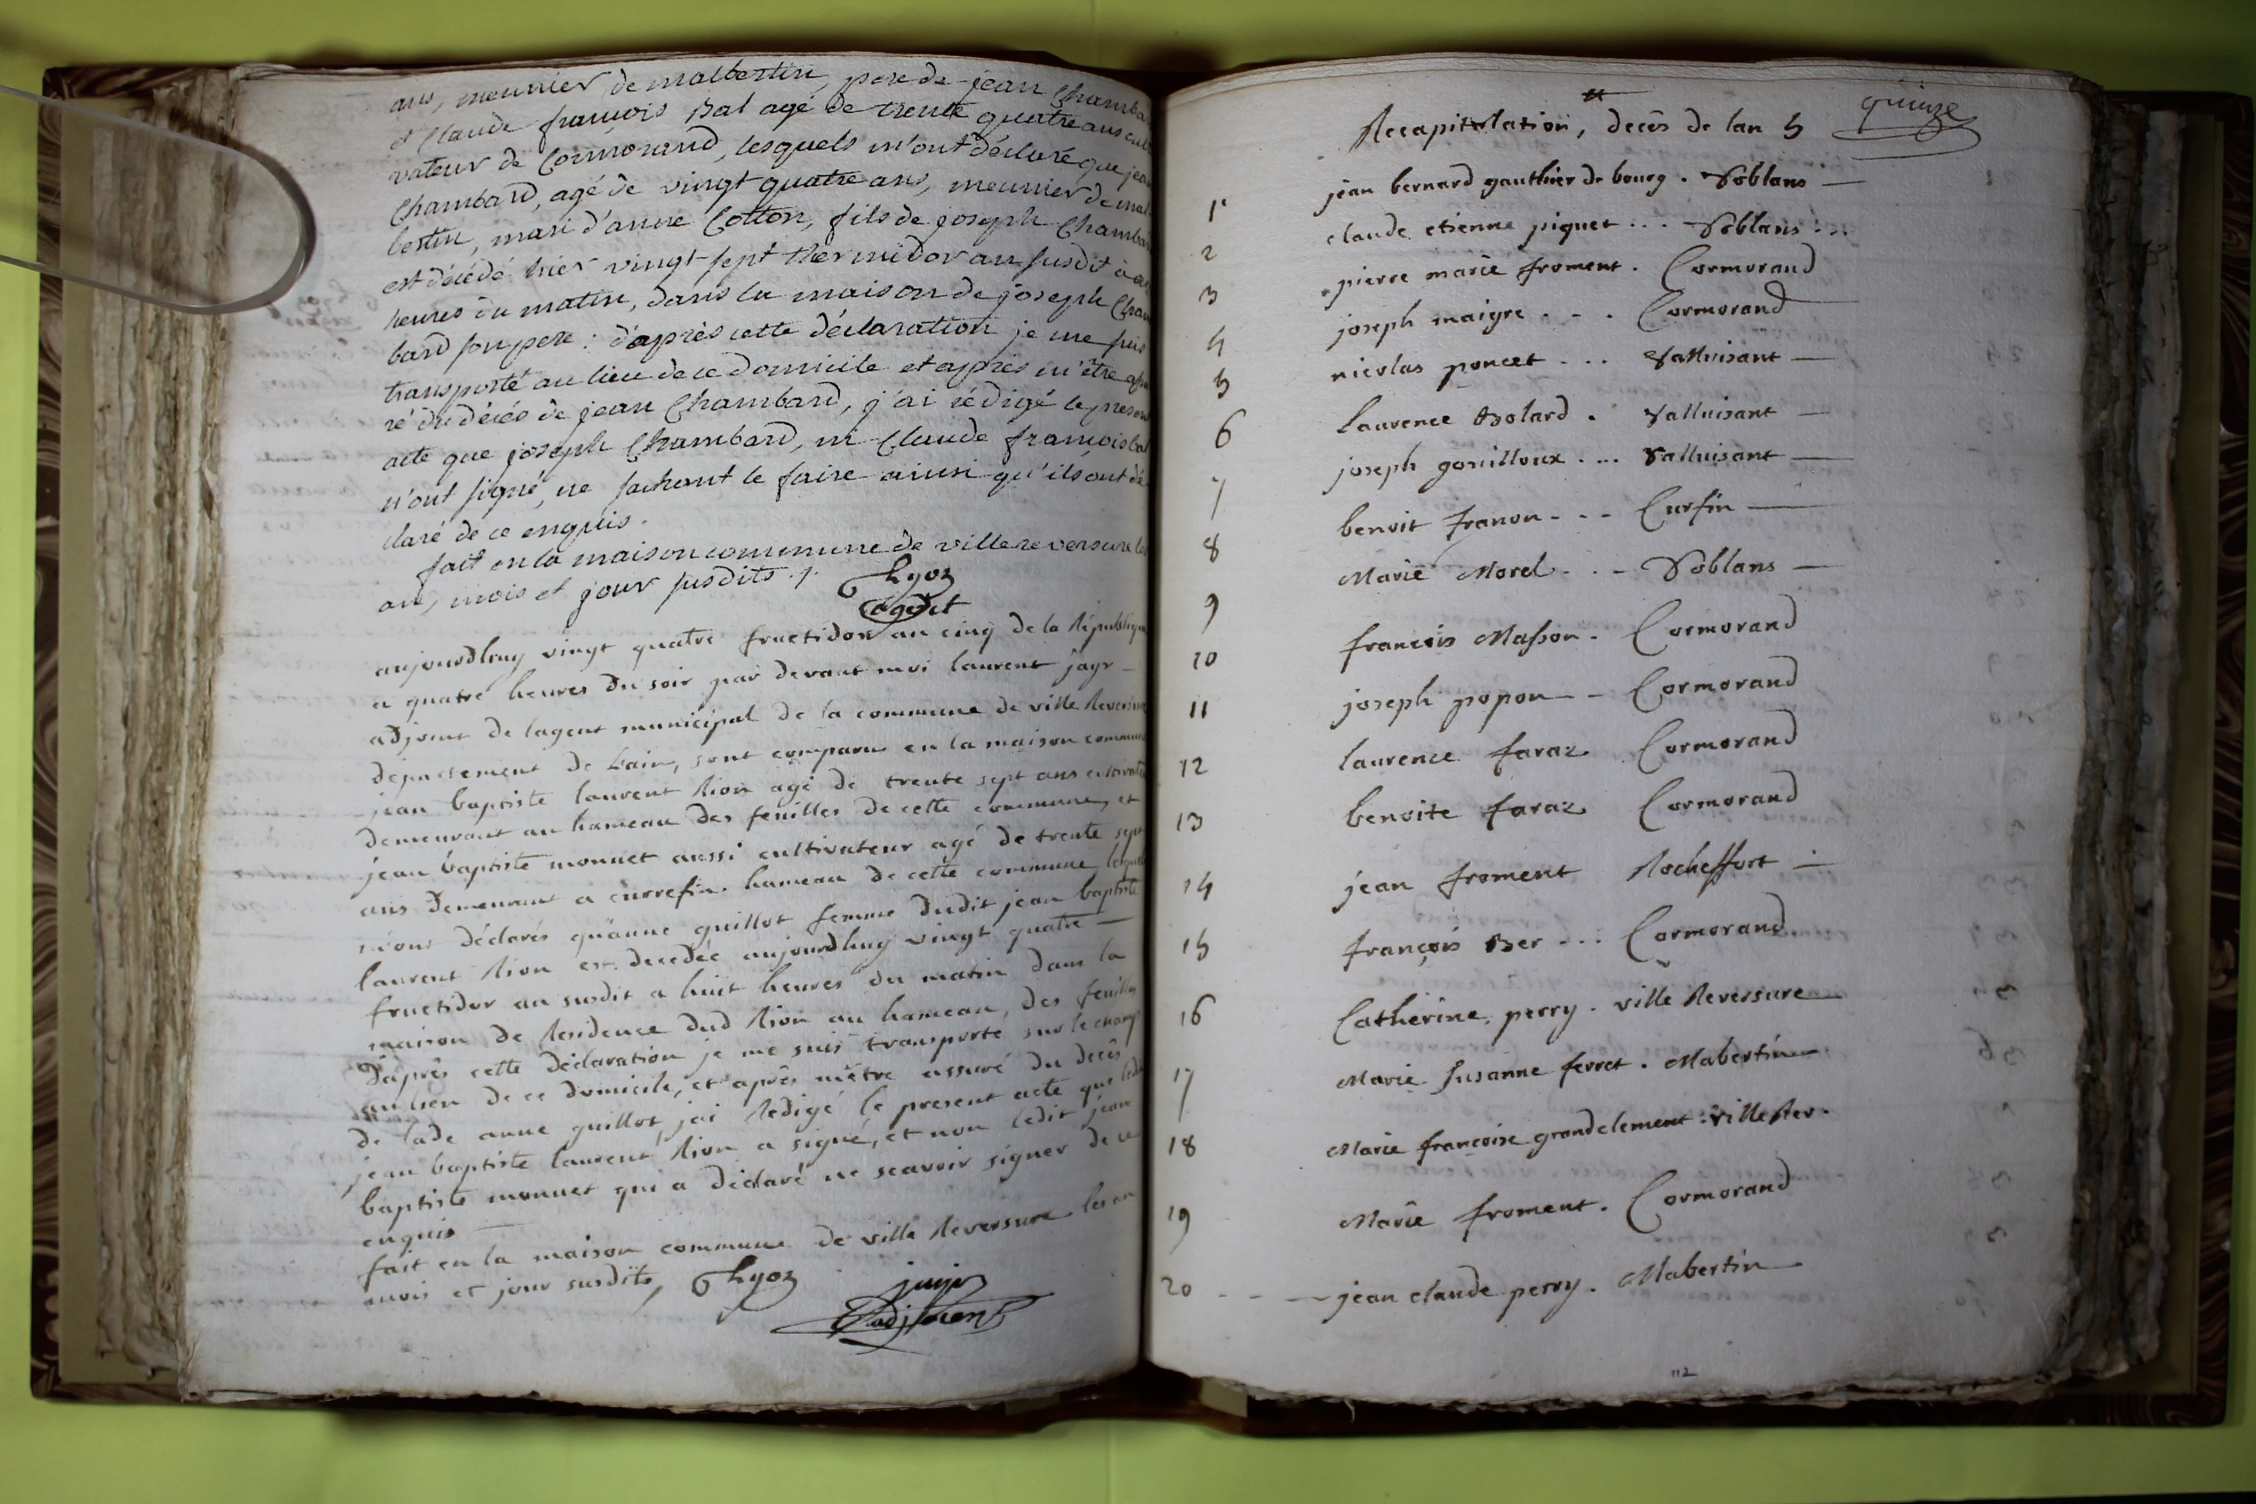 ans, meunier de malbertin, pere de jean Chambar
et Claude françois Bal agé de trente quatre ans culti
vateur de Cormorand, lesquels m'ont déclaré que jean
Chambard, agé de vingt quatre ans, meunier de mal
bertin, mari d'anne Cotton, fils de joseph Chambar
est décédé hier vingt sept thermidor an susdit à
heures du matin, dans la maison de joseph Cham
bard son pere : d'après cette déclaration je me suis
transporté au lieu de ce domicile et après m'être assu
ré du décés de jean Chambard, j'ai rédigé le present
acte que joseph Chambard, ni Claude françois bal
n'ont signé, ne sachant le faire ainsi qu'ils ont dé
claré de ce enquis.
fait en la maison commune de ville reversure les
an, mois et jour susdits ./. Thyoz
agent
aujourdhuy vingt quatre fructidor an cinq de la Republique
a quatre heures du soir par devant moi laurent jayr
adjoint de lagent municipal de la commune de ville Reversure
departement de lain, sont comparu en la maison commune
jean baptiste laurent Rion agé de trente sept ans cultivate
demeurant au hameau des feuilles de cette commune, et
jean baptiste monnet aussi cultivateur agé de trente sept
ans demeurant a currefin hameau de cette commune lesquel
mont déclarés quanne guillot femme dudit jean baptiste
laurent Rion est decedée aujourdhuy vingt quatre
fructidor an susdit a huit heures du matin dans la
maison de Residence dud Rion au hameau, des feuilles
daprès cette déclaration je me suis transporté sur le champ
au lieu de ce domicile, et aprés mêtre assuré du decês
de lade anne guillot, jai Redigé le present acte que ledit
jean baptiste laurent Rion a signé, et non ledit jean
baptiste monnet qui a déclaré ne scavoir signer de ce
enquis
fait en la maison commune de ville Reversure les an
mois et jour susdits, Thyoz jayr
adjoient
quinze
Recapitulation, decês de lan 5
1 jean bernard gauthier de bourg . Noblans
2 claude etienne piquet ... Noblans ...
3 pierre marie froment . Cormorand
4 joseph maigre . - . Cormorand
5 nicolas poncet ... Valluisant
6 Laurence Bolard . Valluisant
7 joseph gouilloux ... Valluisant
8 benoit franon - . - Curfin
9 Marie Morel . . - Noblans
10 francois Masson - Cormorand
11 joseph popon - - Cormorand
12 laurence faraz Cormorand
13 benoite faraz Cormorand
14 jean froment Rocheffort
15 françois Ber ... Cormorand
16 Catherine perry . ville Reversure
17 Marie Susanne ferret . Mabertin
18 Marie françoise grandclement . ville Rev .
19 Marie froment . Cormorand
20 - - - jean claude perry . Mabertin
112